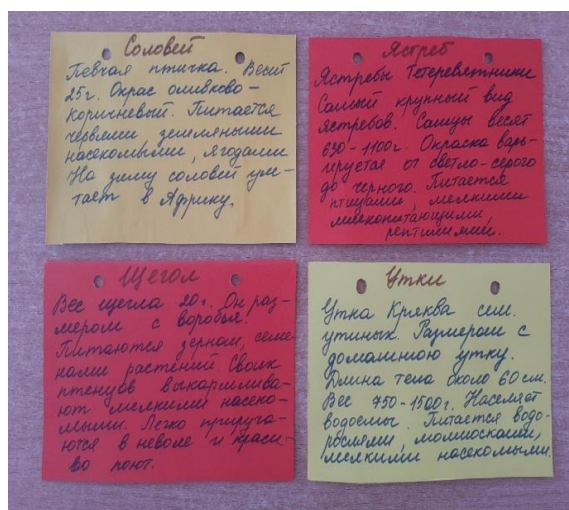 Соловей
Певчая птичка. Весит
25г. Окрас оливково-
коричневый. Питается
червями земляными
насекомыми, ягодами
На зиму соловей уле-
тает в Африку.
Ястреб
Ястребы Тетеревятники
Самый крупный вид
ястребов. Самцы весят
630-1100г. Окраска варь-
ируется от светло-серого
до черного. Питается
птицами, мелкими
млекопитающими,
рептилиями.
Щегол
Вес щегла 20г. Он раз-
мером с воробья.
Питаются зерном, семе-
нами растений. Своих
птенцов выкармлива-
ют мелкими насеко-
мыми. Легко прируча-
ются в неволе и краси-
во поют.
Утки
Утка Кряква сем.
утиных. Размером с
домашнюю утку.
Длина тела около 60см.
Вес 750-1500г. Населяет
водоемы. Питается водо-
рослями, моллюсками,
мелкими насекомыми.